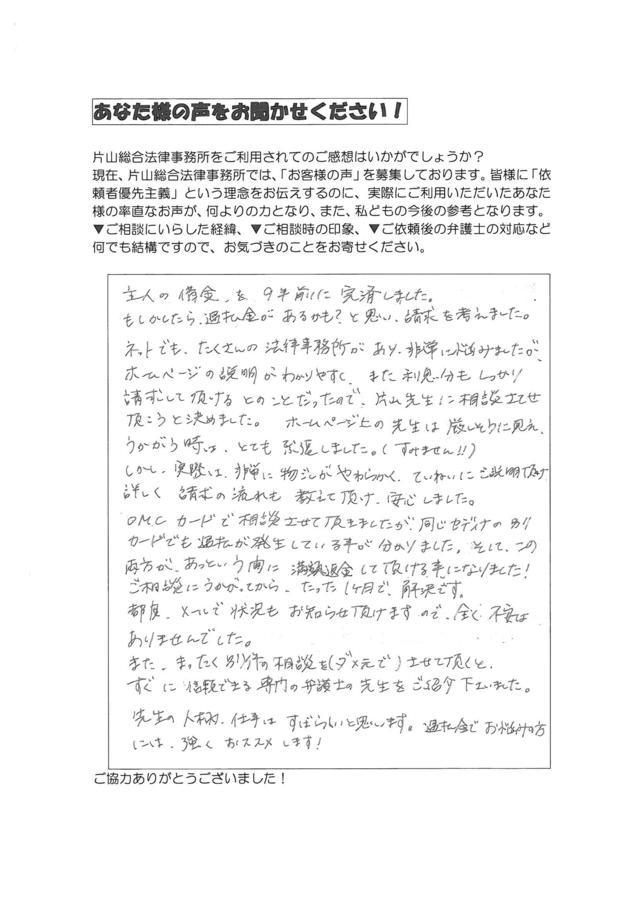 あなた様の声をお聞かせください！
片山総合法律事務所をご利用されてのご感想はいかがでしょうか？
現在、片山総合法律事務所では、「お客様の声」を募集しております。皆様に「依
頼者優先主義」という理念をお伝えするのに、実際にご利用いただいたあなた
様の率直なお声が、何よりの力となり、また、私どもの今後の参考となります。
▼ご相談にいらした経緯、▼ご相談時の印象、▼ご依頼後の弁護士の対応など
何でも結構ですので、お気づきのことをお寄せください。
主人の借金、を 9年前に完済しました。
もしかしたら、過払金があるかも？と思い、請求を考えました。
ネットでも、たくさんの法律事務所があり、非常に悩みましたが、
ホームページの説明がわかりやすく、また利息分もしっかり
請求して頂けるとのことだったので、片山先生に相談させて
頂こうと決めました。 ホームページ上の先生は厳しそうに見え、
うかがう時は、とても緊張しました。(すみません!!)
しかし、実際は、非常に物ごしがやわらかく、ていねいにご説明頂け
詳しく 請求の流れも 教えて頂け、安心しました。
OMCカードで相談させて頂きましたが、同じセディナの別
カードでも過払が発生している事が分かりました。そして、この
両方が、あっという間に 満額返金して頂ける事になりました！
ご相談にうかがってから、たった1ヶ月で、解決です。
都度、メールで状況もお知らせ頂けますので、全く不安は
ありませんでした。
また、まったく別件の相談を(ダメ元で)させて頂くと、
すぐに信頼できる専門の弁護士の先生をご紹介下さいました。
先生の人柄、仕事はすばらしいと思います。過払金でお悩みの方
には、強くおススメします！
ご協力ありがとうございました！